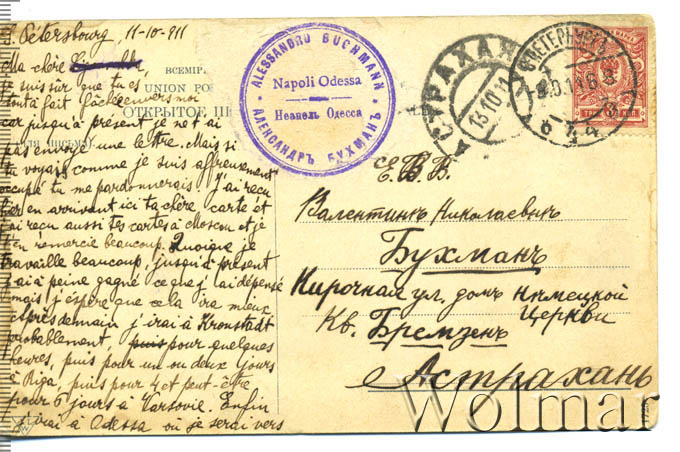 S. Pétersbourg, 11-10-911
Ma chère
je suis sur que tu es
tout à fait fâchée envers moi
car jusqu'à présent je ne t'ai
pas envoyé une lettre. Mais si
tu voyais comme je suis affreusement
occupé tu me pardonnerais. J'ai reçu
hier en arrivant ici ta chère carte et
j'ai reçu aussi tes cartes à Moscou et je
t'en remercie beaucoup. Quoique je
travaille beaucoup, jusqu'à présent
j'ai à peine gagné ce que j'ai dépensé
mais j'espère que cela ira mieux
Après demain j'irai à Kronstadt
probablement, puis pour quelques
heures, puis pour un ou deux jours
à Riga, puis pour 4 et peut-être
pour 5 jours à Varsovie. Enfin
j'irai à Odessa où je serai vers
ВСЕМІР
UNION PO
ОТКРЫТОЕ ПИ
ALESSANDRO BUCHMANN
Napoli Odessa
Неаполь Одесса
АЛЕКСАНДРЪ БУХМАНЪ
АСТРАХАНЬ
13 10 11
С.ПЕТЕРБУРГЪ
Е.В.В.
Валентинѣ Николаевнѣ
Бухманъ
Кирочная ул. домъ Нѣмецкой
Церкви
Кв. Бремзенъ
Астрахань
Wolmar